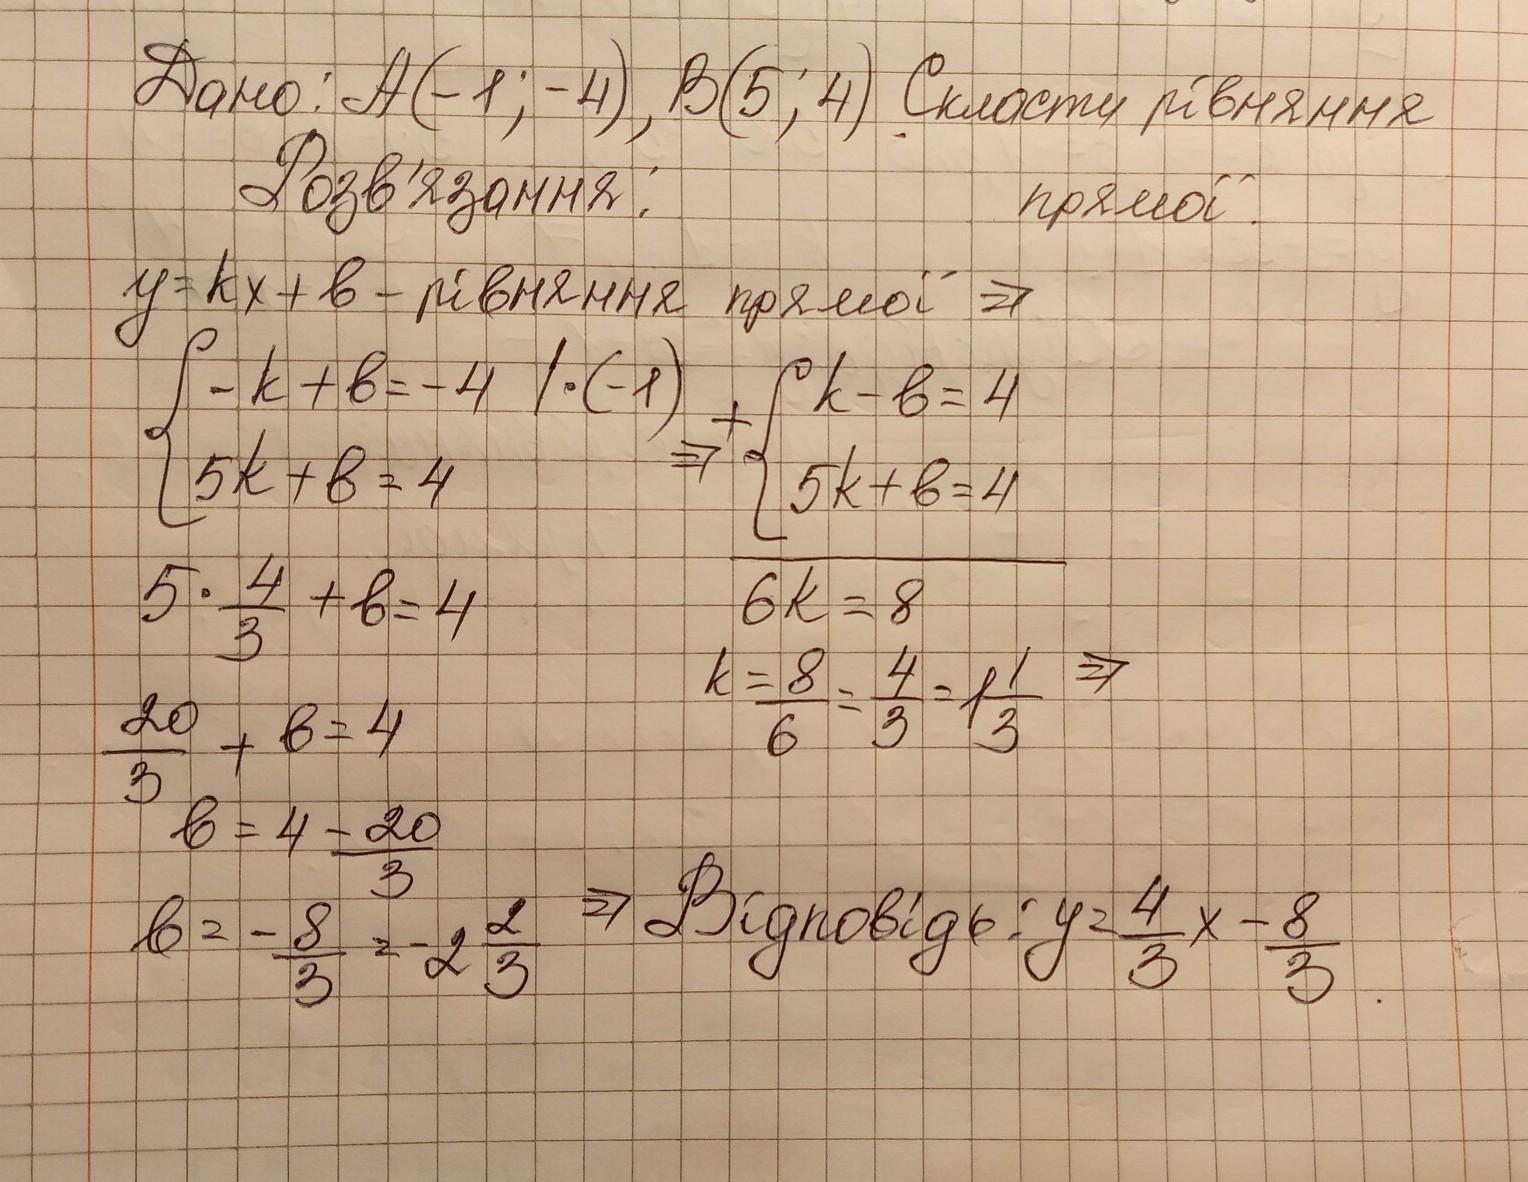 Дано: A(-1; -4), B(5; 4) Скласти рівняння
прямої.
Розв'язання:
y = kx + b - рівняння прямої ⇒
{ -k + b = -4 | · (-1)
5k + b = 4
⇒ + { k - b = 4
5k + b = 4
6k = 8
k = 8/6 = 4/3 = 1 1/3 ⇒
5 · 4/3 + b = 4
20/3 + b = 4
b = 4 - 20/3
b = - 8/3 = -2 2/3 ⇒ Відповідь: y = 4/3 x - 8/3.